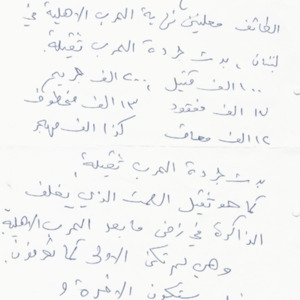 الطائف معلنين نهاية الحرب الاهلية في
لبنان، بدت جردة الحرب ثقيلة:
١٠٠ الف قتيل، ٢٠٠ الف جريح
١٧ الف مفقود ١٣ الف مخطوف
١٢ الف معاق كذا الف مهجر
بدت جردة الحرب ثقيلة،
كما هو ثقيل الصمت الذي يغلف
الذاكرة في زمن ما بعد الحرب الاهلية
وهي لم تكن الاولى كما تعرفون.
ستكون الاخيرة و